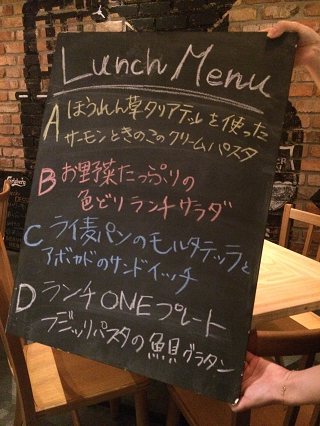 Lunch Menu
A ほうれん草タリアテッレを使った
サーモンときのこのクリームパスタ
B お野菜たっぷりの
魚どり ランチサラダ
C ライ麦パンのモルタデッラと
アボカドのサンドイッチ
D ランチONEプレート
フジッリパスタの魚貝グラタン